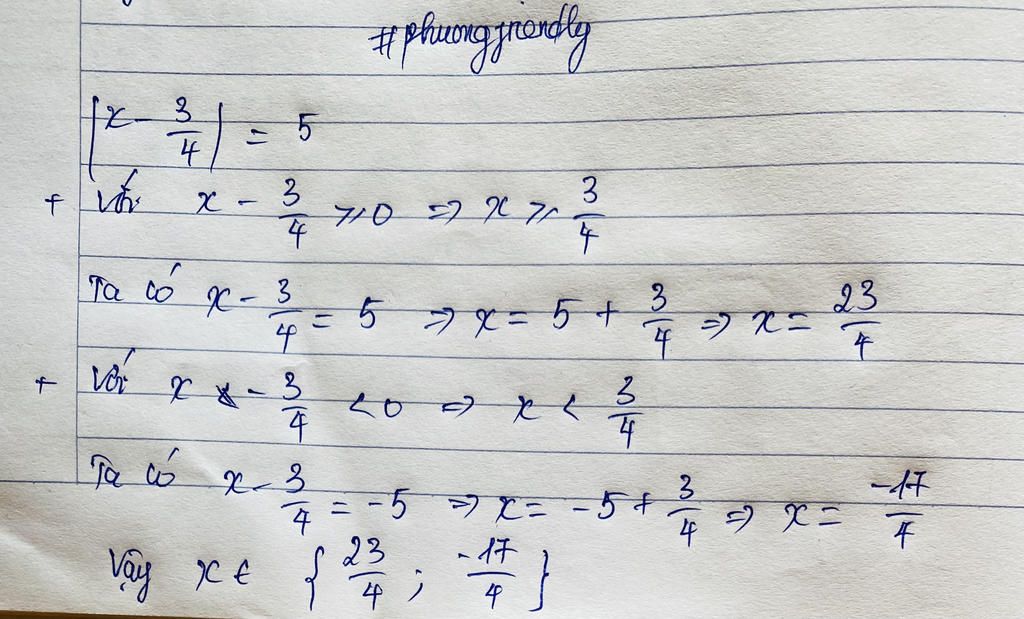 #phuongfriendly
|x - 3/4| = 5
+ Với x - 3/4 ⩾ 0 => x ⩾ 3/4
Ta có x - 3/4 = 5 => x = 5 + 3/4 => x = 23/4
+ Với x - 3/4 < 0 => x < 3/4
Ta có x - 3/4 = -5 => x = -5 + 3/4 => x = -17/4
Vậy x ∈ {23/4 ; -17/4}